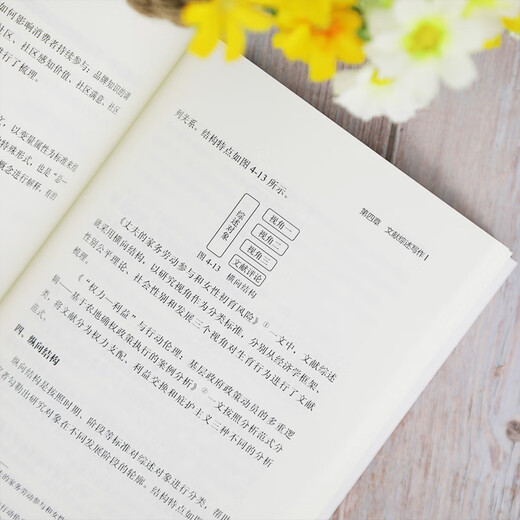 如何影响消费者持续参与：品牌知识的调
社区、社区感知价值、社区满意、社区
进行了梳理。
文，以变量属性为标准来组
特殊形式，也是“总一
概念进行解释，有的
第四章 文献综述写作
列关系，结构特点如图4-13所示。
综述对象
视角一
视角二
视角三
文献评论
图4-13 横向结构
《丈夫的家务劳动参与和女性初育风险》①一文中，文献综述
就采用横向结构，以研究视角作为分类标准，分别从经济学框架、
性别公平理论、社会性别和发展三个视角对生育行为进行了文献
梳理。
《“权力—利益”与行动伦理：基层政府政策动员的多重逻
辑——基于农地确权政策执行的案例分析》②一文按照分析范式分
类，将文献分为权力支配、利益交换和庇护主义三种不同的分析
范式。
四、纵向结构
纵向结构是按照时期、阶段等标准对综述对象进行分类，帮
者勾勒出研究对象在不同发展阶段的轮廓。结构特点如图
的家务劳动参与和女性